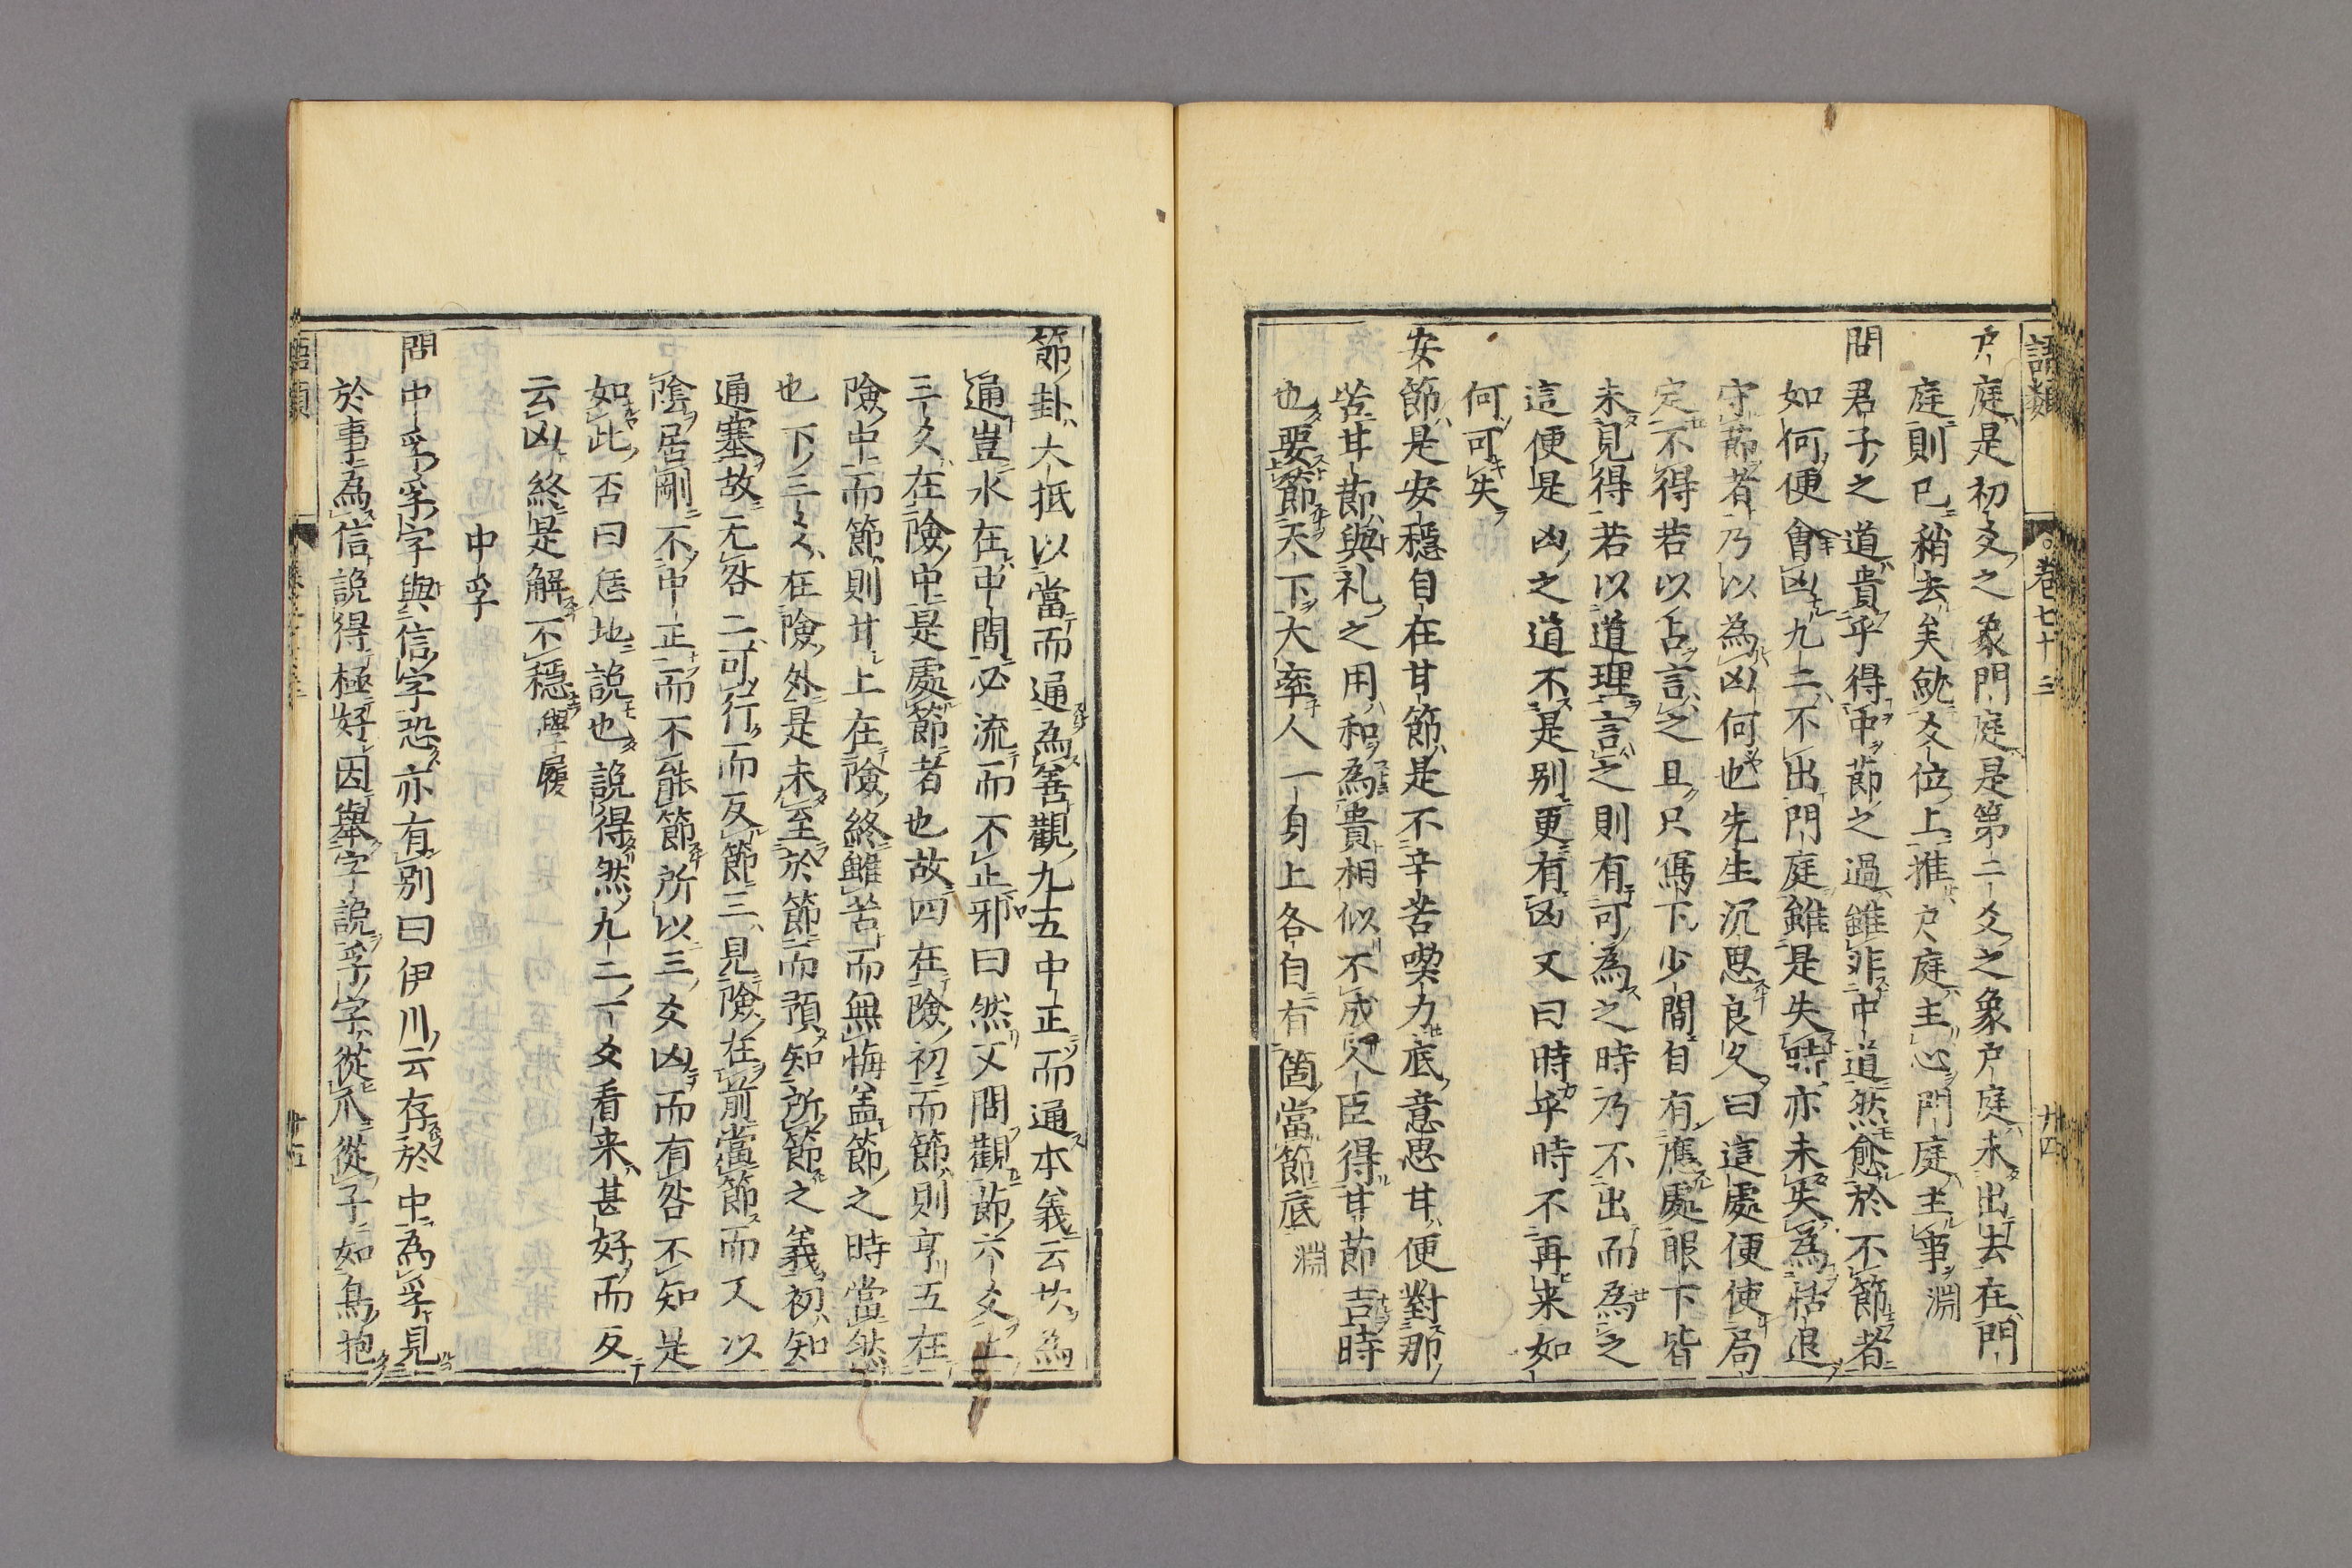 語類
卷七十三
廿四
戶庭是初爻之象門庭是第二爻之象戶庭未出去在門
庭則已稍去矣就爻位上推戶庭主心門庭主事淵
問君子之道貴乎得中節之過雖非中道然愈於不節者
如何便會凶九二不出門庭雖是失時亦未失為恬退
守節者乃以為凶何也先生沉思良久曰這處便使局
定不得若以占言之且只寫下少間自有應處眼下皆
未見得若以道理言之則有可為之時乃不出而為之
這便是凶之道不是別更有凶又曰時乎時不再来如
何可失
安節是安穩自在甘節是不辛苦喫力底意思甘便對那
苦甘節與礼之用和為貴相似不成人臣得甘節吉時
也要節天下大率人一身上各自有箇當節底淵
節卦大抵以當而通為善觀九五中正而通本義云坎為
通豈水在中間必流而不止邪曰然又問觀節六爻上
三爻在險中是處節者也故四在險初而節則亨五在
險中而節則甘上在險終雖苦而無悔盖節之時當然
也下三爻在險外是未至於節而預知所節之義初知
通塞故无咎二可行而反節三見險在前當節而又以
陰居剛不中正而不能節所以三爻凶而有咎不知是
如此否曰恁地說也說得然九二一爻看来甚好而反
云凶終是解不穩學履
中孚
問中孚孚字與信字恐亦有別曰伊川云存於中為孚見
於事為信說得極好因舉字說孚字從爪從子如鳥抱
語類
廿五